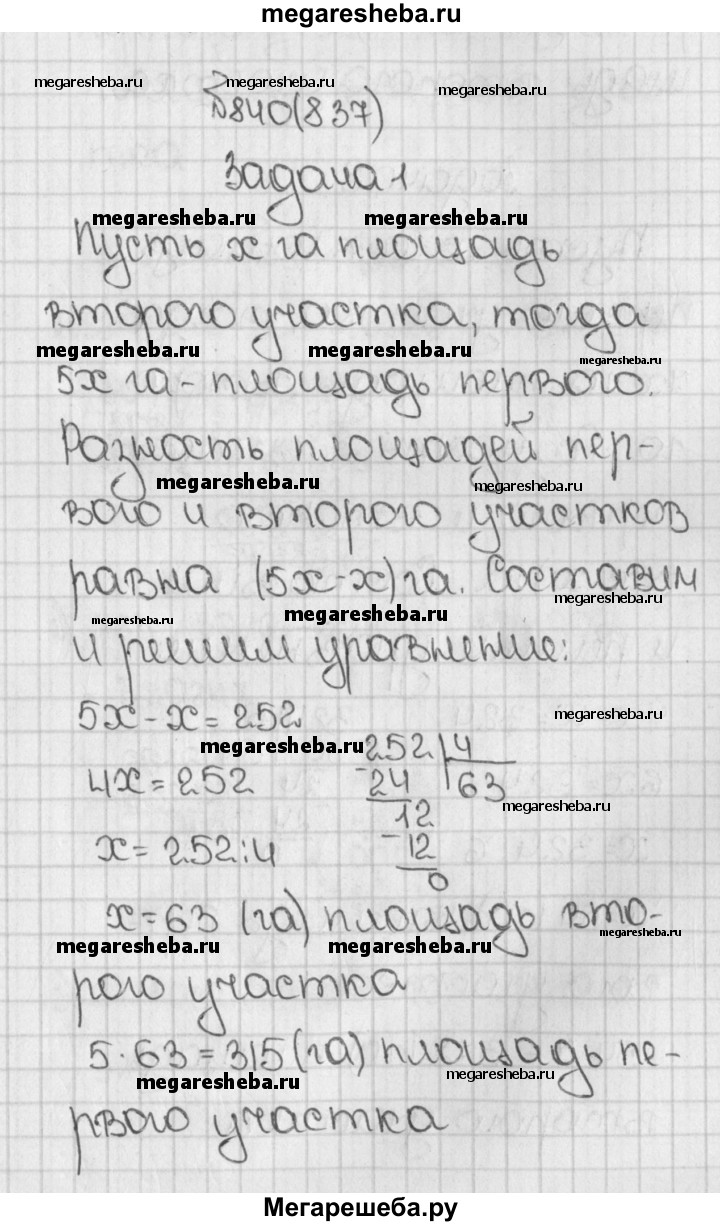 megaresheba.ru
megaresheba.ru megaresheba.ru megaresheba.ru
№840(837)
Задача 1
megaresheba.ru megaresheba.ru
Пусть x га площадь
второго участка, тогда
megaresheba.ru megaresheba.ru megaresheba.ru
5x га - площадь первого.
Разность площадей пер-
megaresheba.ru megaresheba.ru
вого и второго участков
равна (5x-x)га. Составим
megaresheba.ru megaresheba.ru megaresheba.ru
и решим уравнение:
5x - x = 252
megaresheba.ru megaresheba.ru
252 4
4x = 252
-24 63
megaresheba.ru
12
x = 252:4
-12
0
x = 63 (га) площадь вто-
megaresheba.ru megaresheba.ru megaresheba.ru
рого участка
5·63=315(га) площадь пе-
megaresheba.ru megaresheba.ru
рвого участка
Мегарешеба.ру